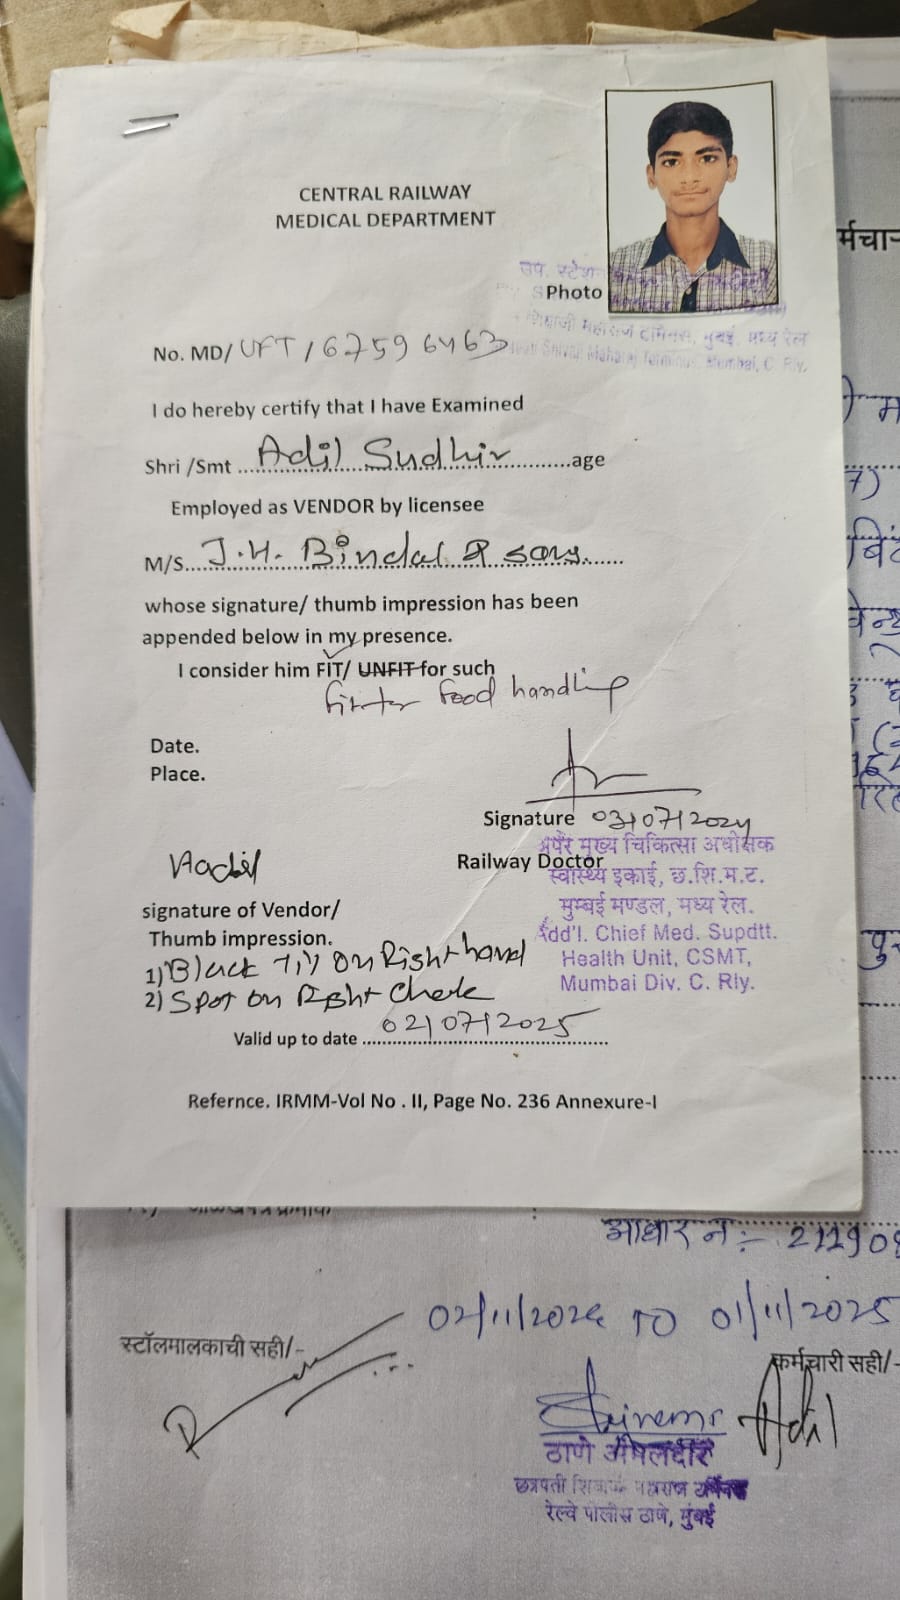 CENTRAL RAILWAY
MEDICAL DEPARTMENT
उप. स्टेशन
Photo
शिवाजी महाराज टर्मिनस, मुंबई, मध्य रेल
Shivaji Maharaj Terminus, Mumbai, C. Rly.
No. MD/UFT/67596463
I do hereby certify that I have Examined
Shri /Smt ...Adil Sudhir...age
Employed as VENDOR by licensee
M/S...J.H. Bindal & sons...
whose signature/ thumb impression has been
appended below in my presence.
I consider him FIT/ UNFIT for such
fit for food handling
Date.
Place.
Signature 03/07/2024
Railway Doctor
अपर मुख्य चिकित्सा अधीक्षक
स्वास्थ्य इकाई, छ.शि.म.ट.
मुम्बई मण्डल, मध्य रेल.
Add'l. Chief Med. Supdtt.
Health Unit, CSMT,
Mumbai Div. C. Rly.
Aadil
signature of Vendor/
Thumb impression.
1) Black Til on Right hand
2) Spot on Right Cheek
Valid up to date ...02/07/2025...
Refernce. IRMM-Vol No . II, Page No. 236 Annexure-I
र्मचा
7)
आधार नं:- 211908
02/11/2024 TO 01/11/2025
स्टॉलमालकाची सही/-
कर्मचारी सही/-
Adil
ठाणे अंमलदार
छत्रपती शिवाजी महाराज टर्मिनस
रेल्वे पोलीस ठाणे, मुंबई